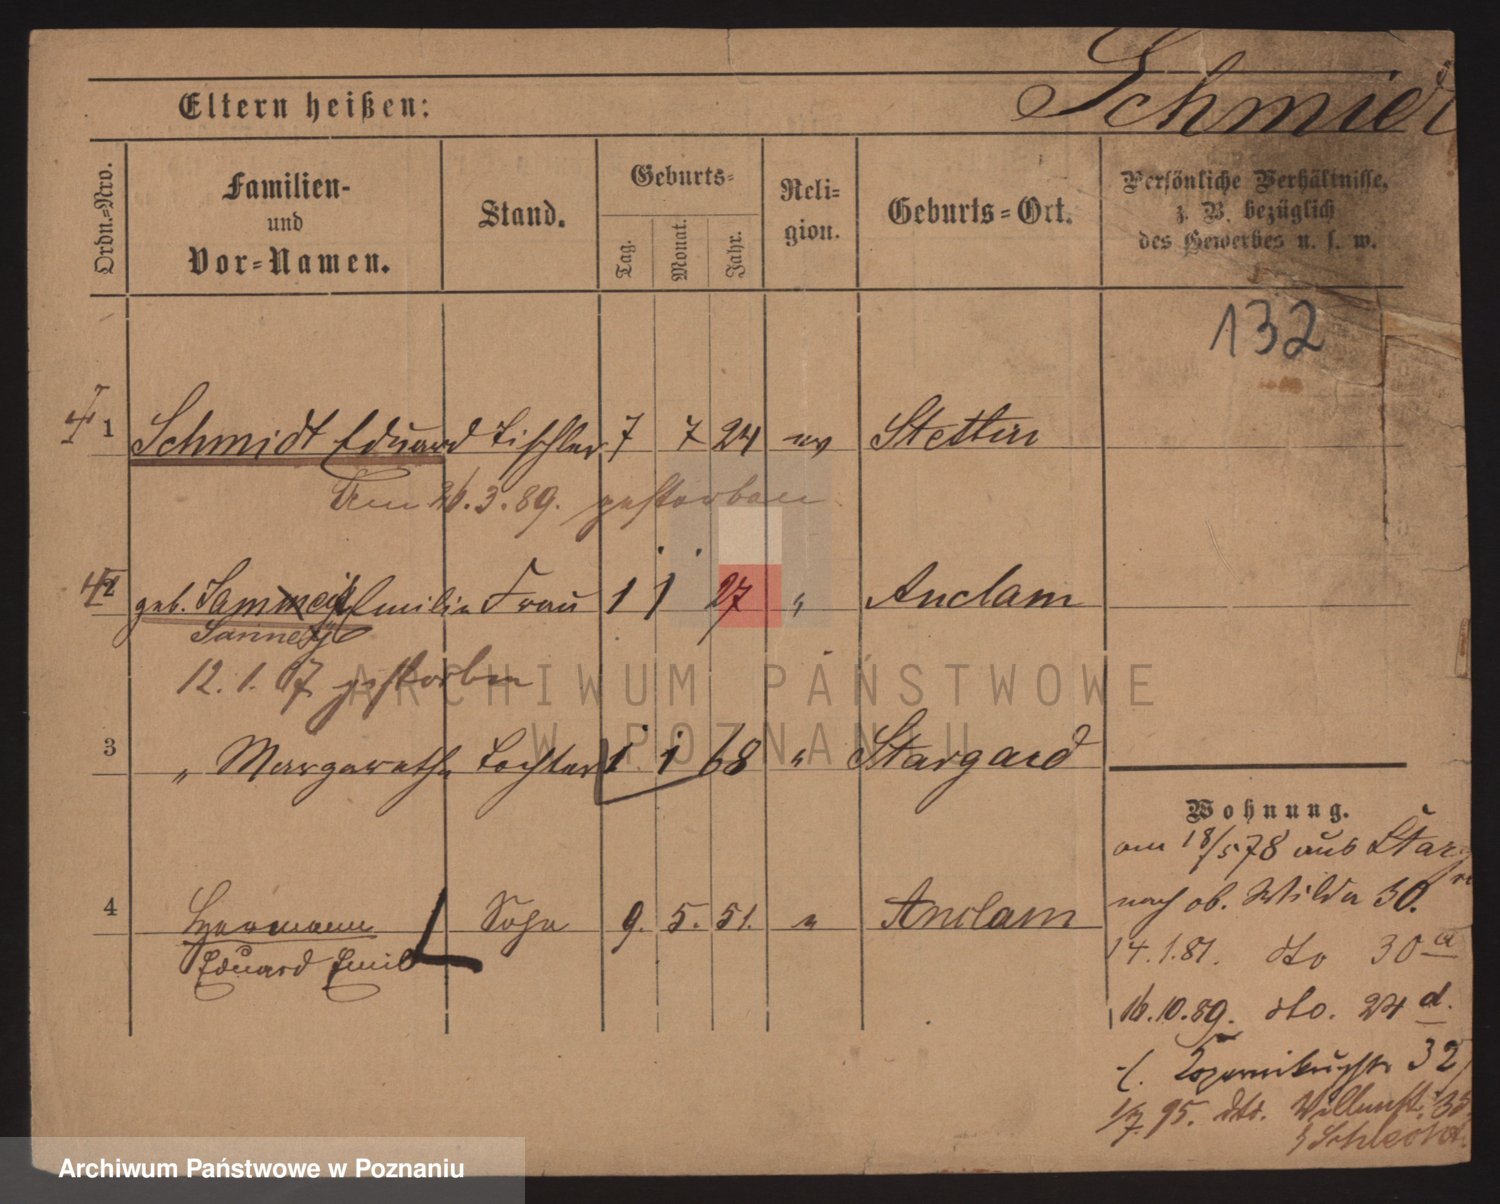 Schmidt
Eltern heißen:
Ordn.=Nro.
Familien-
und
Vor=Namen.
Stand.
Geburts=
Tag.
Monat.
Jahr.
Reli=
gion.
Geburts=Ort.
Persönliche Verhältnisse,
z. B. bezüglich
des Gewerbes u. s. w.
132
1 Schmidt Eduard Tischler 7 7 24 ev Stettin
Am 26.3.89. gestorben
2 geb. Emilie Frau 1 1 27 " Anclam
12.1. gestorben
3 " Margarethe Tochter 1 1 68 " Stargard
4 Hermann Sohn 9. 5. 51. " Anclam
Eduard Emil
Wohnung.
am 18/5 78 aus
nach ob. Wilda 30.
14.1.81. dto 30 a
16.10.89. dto. 24 d.
32
95. dto.
ARCHIWUM PAŃSTWOWE
W POZNANIU
Archiwum Państwowe w Poznaniu